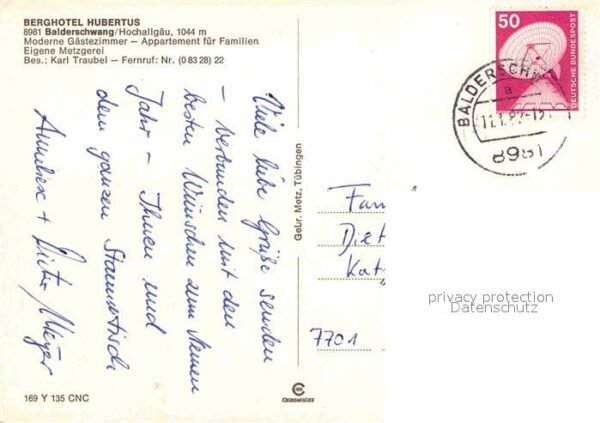 BERGHOTEL HUBERTUS
8981 Balderschwang/Hochallgäu, 1044 m
Moderne Gästezimmer — Appartement für Familien
Eigene Metzgerei
Bes.: Karl Traubel — Fernruf: Nr. (0 83 28) 22
Viele liebe Grüße senden
– verbunden mit den
besten Wünschen zum Neuen
Jahr – Ihnen und
dem ganzen Stammtisch
Anneliese + Dieter Meyer
Gebr. Metz, Tübingen
50
DEUTSCHE BUNDESPOST
BALDERSCH
a
8981
Fam
Diet
Kat
7701
privacy protection
Datenschutz
169 Y 135 CNC